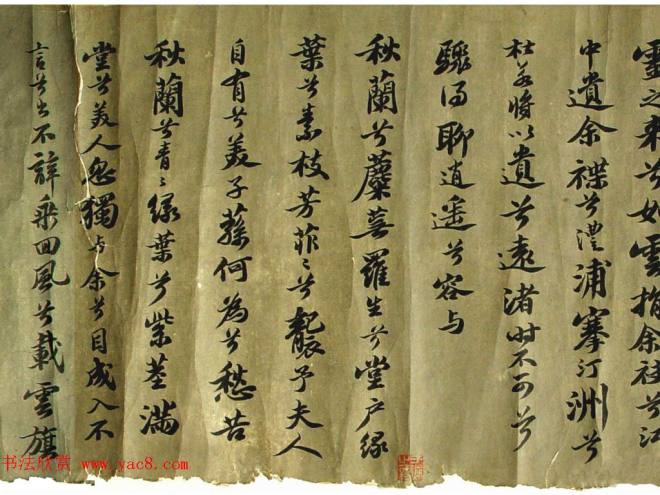 靈之來兮如雲捐余袂兮江
中遺余褋兮澧浦搴汀洲兮
杜若將以遺兮遠渚时不可兮
驟得聊逍遙兮容与
秋蘭兮蘪蕪羅生兮堂戶緑
葉兮素枝芳菲〻兮襲予夫人
自有兮美子蓀何為兮愁苦
秋蘭兮青〻緑葉兮紫莖滿
堂兮美人忽獨与余兮目成入不
言兮出不辭乘回風兮載雲旗
书法欣赏 www.yac8.com